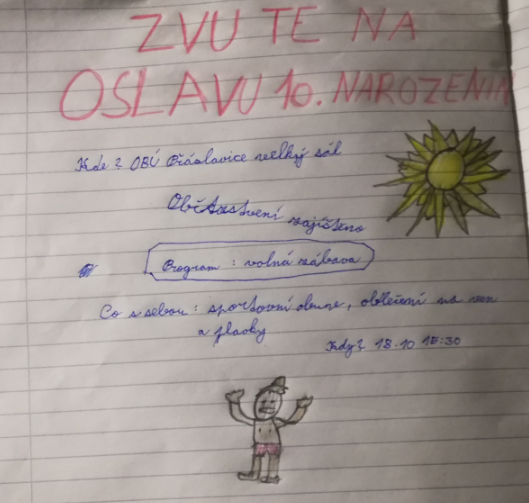 ZVU TE NA
OSLAVU 10. NAROZENIN
Kde? OBÚ Přáslavice velký sál
Občerstvení zajištěno
Program : volná zábava
Co s sebou : sportovní obuv, oblečení na ven
a plavky
Kdy? 18.10 15:30